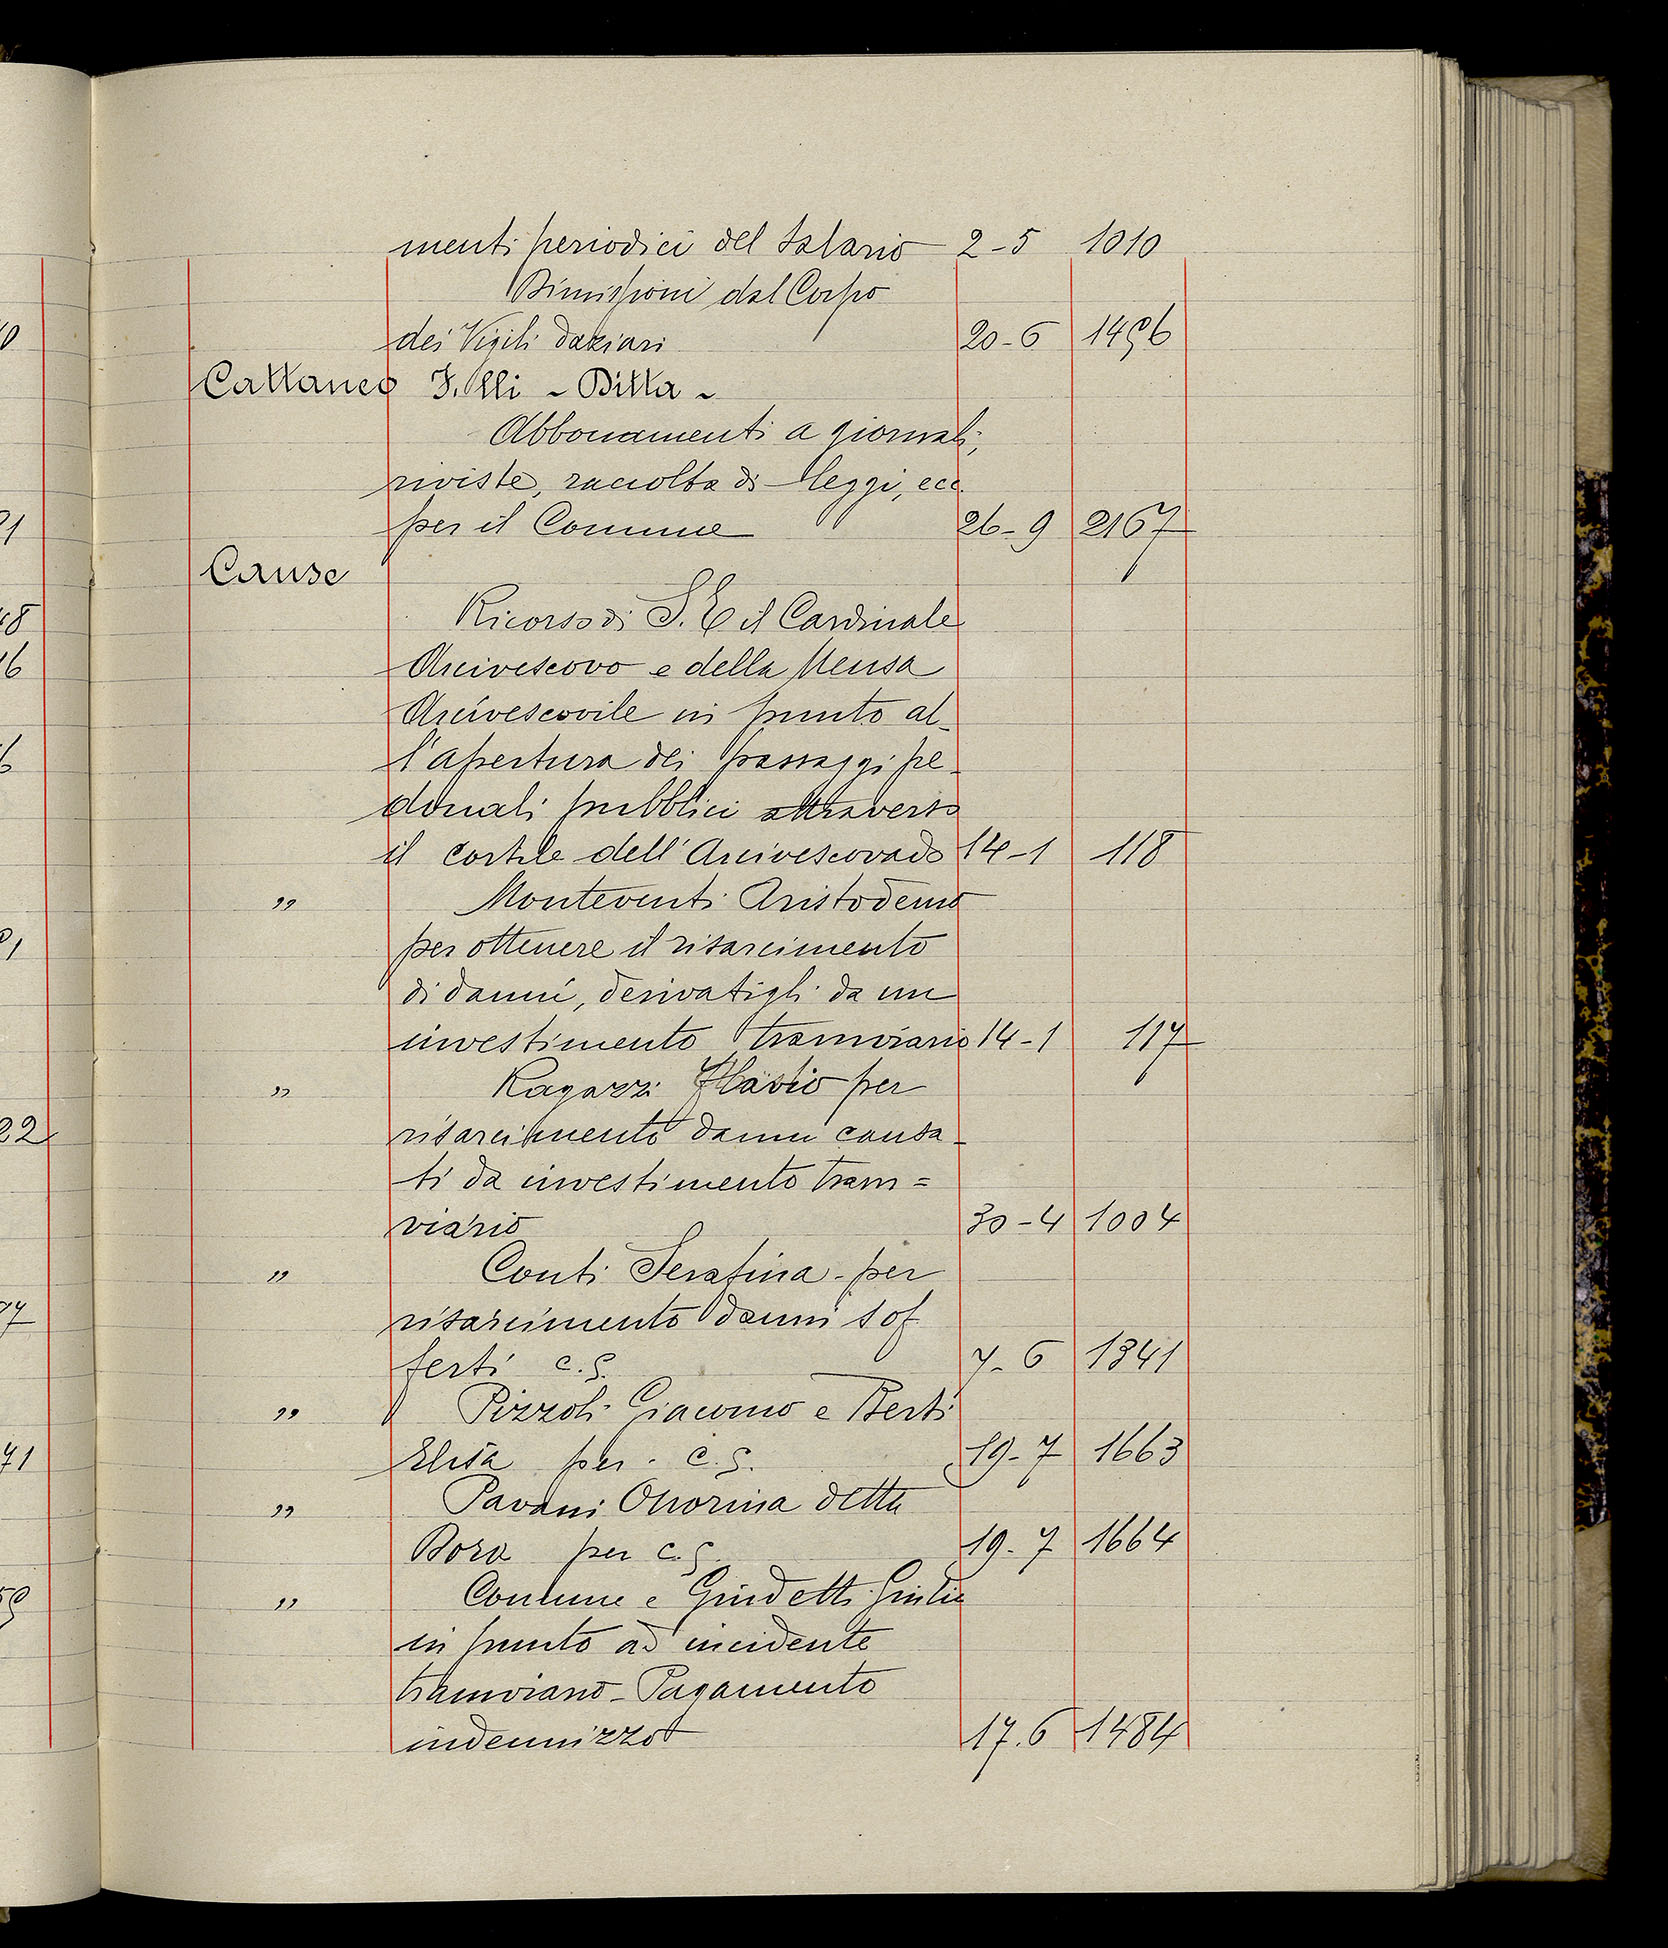 menti periodici del salario 2-5 1010
Dimissioni dal Corpo
dei Vigili daziari 20-6 1496
Cattaneo F.lli - Ditta -
Abbonamenti a giornali,
riviste, raccolta di leggi, ecc.
per il Comune 26-9 2167
Cause
Ricorso di S. E il Cardinale
Arcivescovo e della Mensa
Arcivescovile in punto al-
l'apertura dei passaggi pe-
donali pubblici attraverso
il cortile dell'Arcivescovado 14-1 118
" Monteventi Aristodemo
per ottenere il risarcimento
di danni, derivatigli da un
investimento tramviario 14-1 117
" Ragazzi Flavio per
risarcimento danni causa-
ti da investimento tram=
viario 30-4 1004
" Conti Serafina - per
risarcimento danni sof
ferti c.s. 7-6 1341
" Pizzoli Giacomo e Berti
Elisa per c.s. 19-7 1663
" Pavani Onorina detta
Dora per c.s. 19-7 1664
" Comune e Guidetti Giulio
in punto ad incidente
tramviario - Pagamento
indennizzo 17.6 1484
10
21
48
16
6
91
22
77
71
59